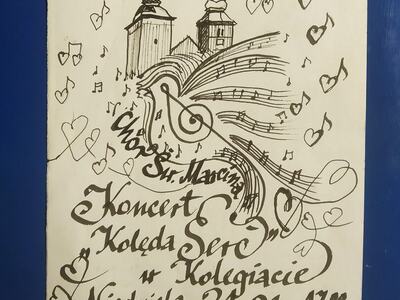 Chór
Św. Marcina
Koncert
„Kolęda Serc”
w Kolegiacie
Niedziela